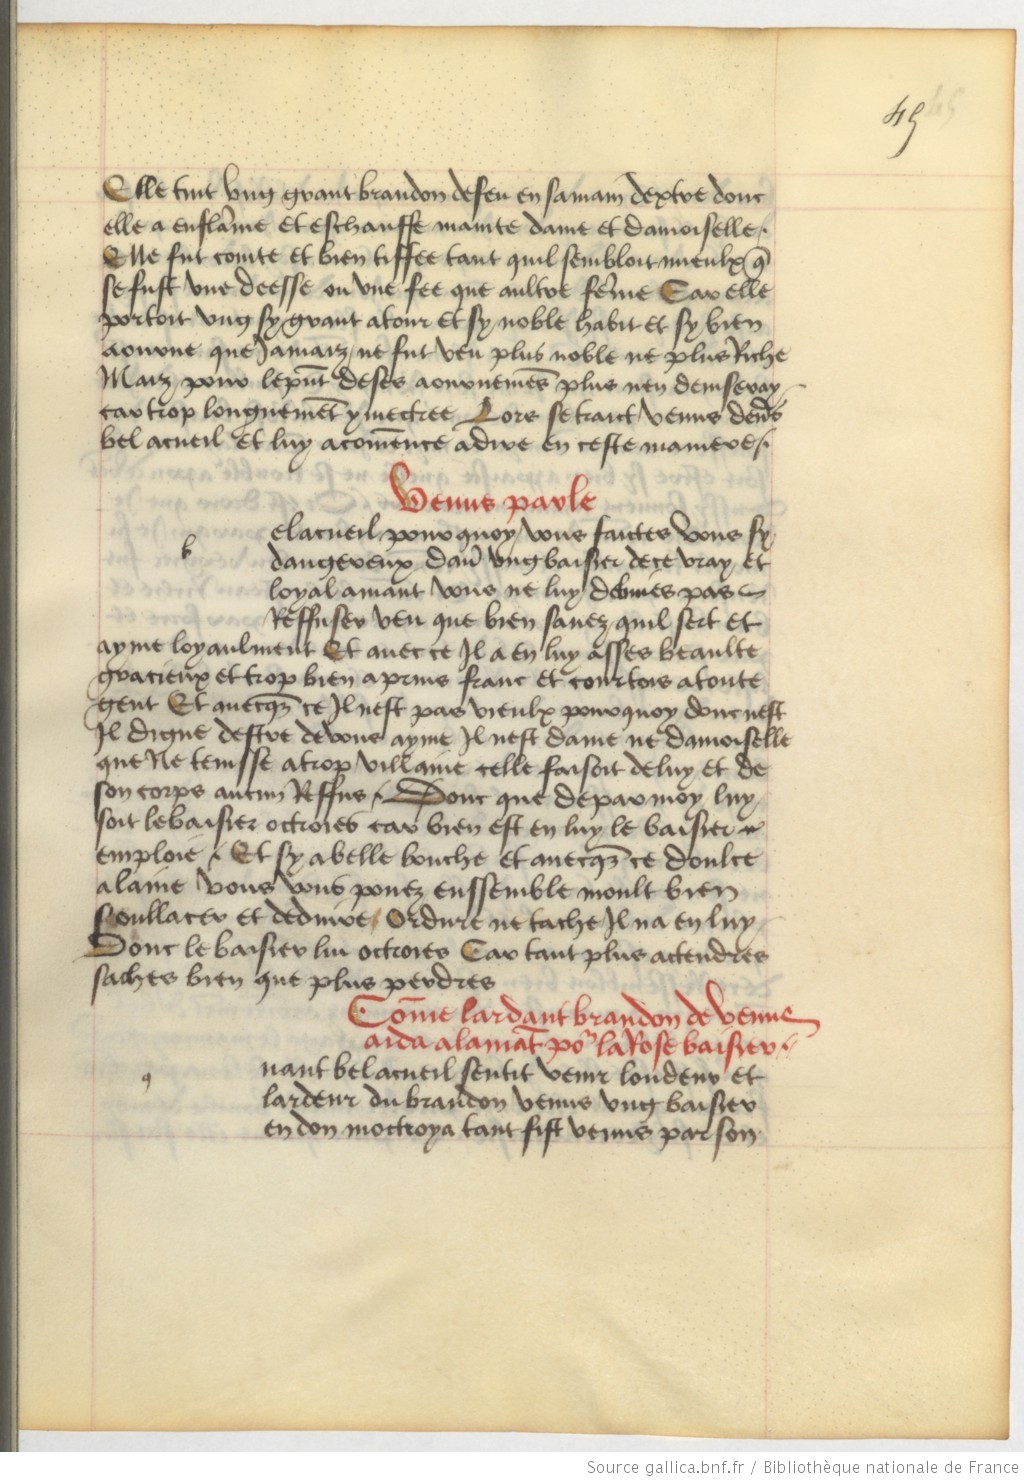 45
Elle tint vng grant brandon de feu en sa main dextre donc
elle a enflãme et eschauffe mainte dame et damoiselle
Elle fut cointe et bien tiffee tant quil sembloit mieulx q̃
se fust vne deesse ou vne fee que aultre fẽme Car elle
portoit vng sy grant atour et sy noble habit et sy bien
aourne que Jamaiz ne fut veu plus noble ne plus Riche
Maiz pour lep̃nt de ses aournemẽs plus nen deviseray
car trop longuemẽt y mectree Lors se traict venus deṽs
bel acueil et luy acomẽnce a dire en ceste maniere
Venus parle
b
elacueil pourquoy vous faictes vous sy
dangereux dau͂ vng baisier de ce vray et
loyal amant vous ne luy debuies pas
Reffuser veu que bien sauez quil sert et
ayme loyaulment Et auec ce Il a en luy asses beaulte
gracieux et trop bien aprius franc et courtois a toute
gent Et auecq̃z ce Il nest pas vieulx pourquoy donc nest
Il digne destre de vous ayme Il nest dame ne damoiselle
que Ne tenisse a trop villaine celle faisoit de luy et de
son corps aucun Reffus Donc que de par moy luy
soit le baisier octroies car bien est en luy le baisier
emploie Et sy a belle bouche et auecq̃z ce doulce
alaine vous vous pouez enssemble moult bien
soullacer et deduire Ordure ne tache Il na en luy
Donc le baisier lui octroies Car tant plus actendres
saches bien que plus perdres
Cõme lardant brandon de venus
aida a lamãt po͛ la Rose baisier
q
uant bel acueil sentit venir loudeur et
lardeur du brandon venus vng baisier
en don moctroya tant fist venus par son
Source gallica.bnf.fr / Bibliothèque nationale de France